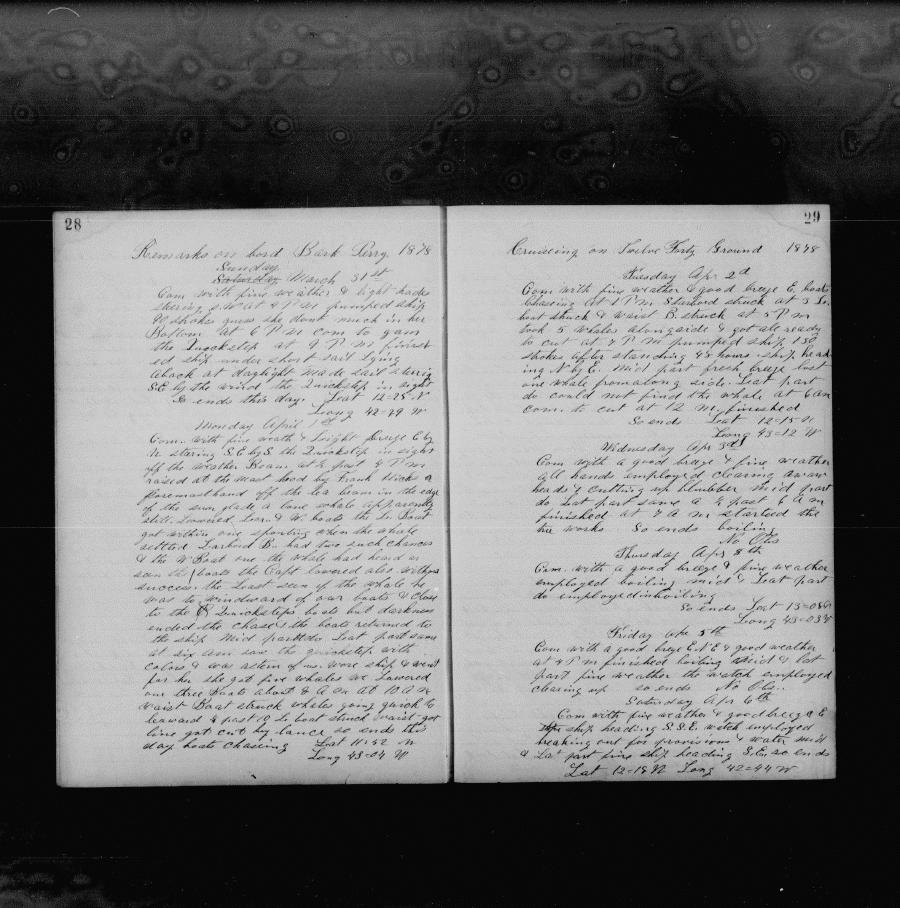 28
Remarks on bord Bark Perry 1878
Sunday
Saturday March 31st
Com with fine weather & light
stering S W at 4 P M pumped ship
strokes guess she dont much in her
Bottom at 6 P M com to gam
the Quickstep at 9 P M finish
ed ship under short sail lying
aback at daylight made sail sterring
S.E by the wind the Quickstep in sight
So ends this day. Lat 12=25 N
Long 42=49 W
Monday April 1st
Com. with fine weath & light breeze E by
N stering S.E by S the Quickstep in sight
off the weather Beam at ½ past 4 P M
raised at the mast head by Frank Hicks a
foremasthand off the lea beam in the edge
of the sun glade a lone whale apparently
still. Lowered Lar. & W. boats the La Boat
got within one sporting when the whale
settled Larbord B. had two such chances
& the W Boat one the whale had heard or
seen the boats the Capt lowered also without
success. the Last seen of the whale he
was to windward of our boats & close
to the Quicksteps boats but darkness
ended the chase & the boats returned to
the ship mid part do Last part same
at six am saw the quickstep with
colors & was astern of us. wore ship & went
for her she got five whales we Lowered
our three Boats about 8 A M at 10 A M
waist Boat struck whales going quick to
leaward ½ past 10 La boat struck waist got
line got cut by lance so ends this
day boats chasing Lat 11=52 N
Long 43=04 W
29
Cruiseing on Twelve Forty Ground 1878
Tuesday Apr 2d
Com with fine weather & good breeze E. boats
Chasing at 1 P M Starbord struck at 3 La
boat struck & Waist B struck at 5 P M
took 5 whales alongside & got all ready
to cut at 8 P M pumped ship 150
strokes after standing 48 hours ship head
ing N by E. Mid part fresh breeze lost
one whale from along side. Last part
do could not find the whale at 6 am
com. to cut at 12 M. finished
So ends Lat 12=15 N
Long 43=12 W
Wednesday Apr 3d
Com with a good breeze & fine weather
all hands employed clearing away
heads & cutting up blubber Mid part
do Last part same at ½ past 6 A M
finished at 7 A M started the
tri works So ends boiling
No Obs
Thursday Apr 4th
Com. with a good breeze & fine weather
employed boiling mid & Last part
do employed in boiling
So ends Lat 13=08 N
Long 43=03 W
Friday Apr 5th
Com with a good breze E.N.E & good weather
at 4 P M finished boiling Mid & last
part fine weather the watch employed
clearing up so ends No Obs..
Saturday Apr 6th
Com with fine weather & good breeze E
ship heading S.S.E. watch employed
breaking out for provisions & water mid
& La' part fine ship heading S.E. so ends
Lat 12=18 N Long 42=44 W